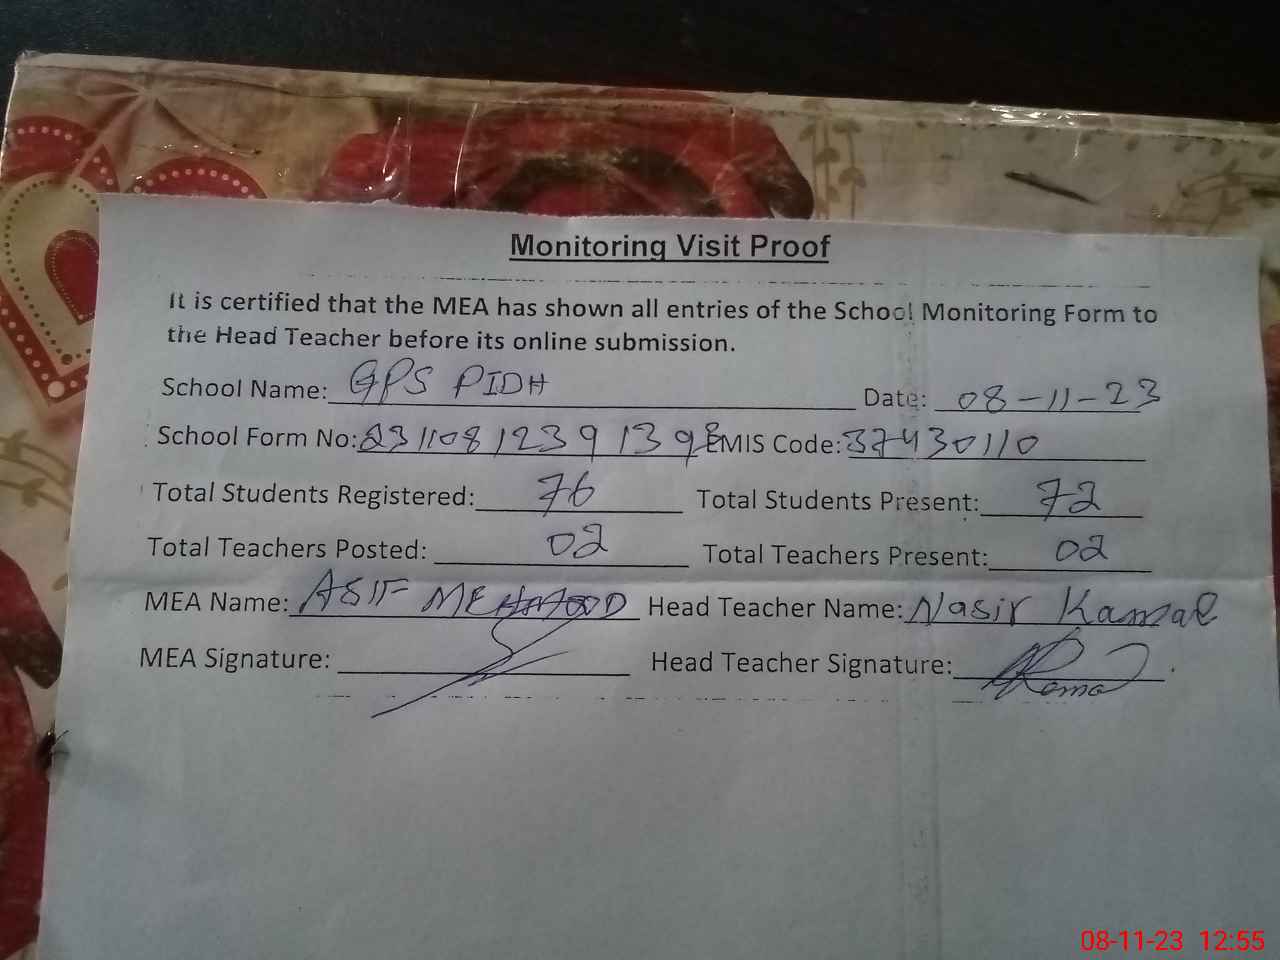 Monitoring Visit Proof
It is certified that the MEA has shown all entries of the School Monitoring Form to
the Head Teacher before its online submission.
School Name: GPS PIDH Date: 08-11-23
School Form No: 2311081239139 EMIS Code: 37430110
Total Students Registered: 76 Total Students Present: 72
Total Teachers Posted: 02 Total Teachers Present: 02
MEA Name: ASIF MEHMOOD Head Teacher Name: Nasir Kamal
MEA Signature: Head Teacher Signature:
08-11-23 12:55